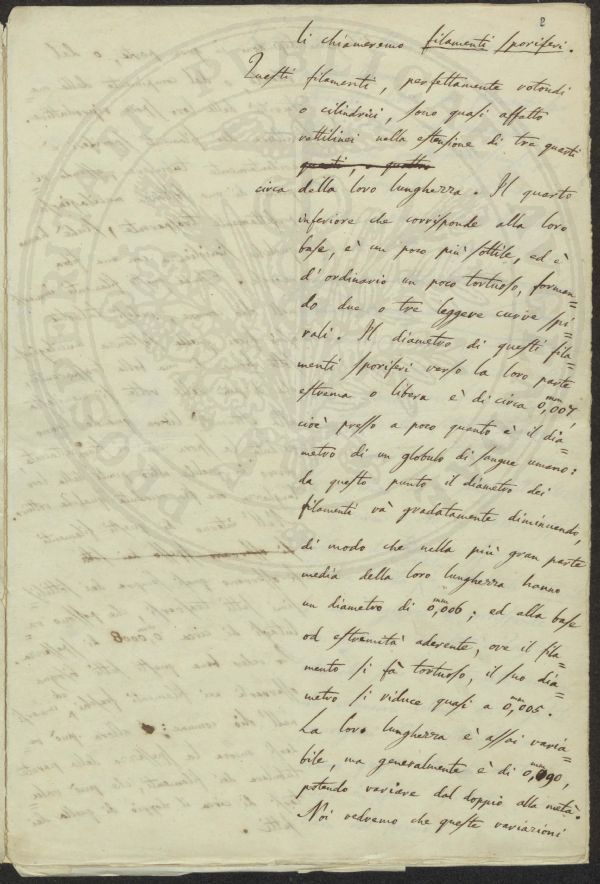 2
li chiameremo filamenti sporiferi.
Questi filamenti, perfettamente rotondi
o cilindrici, sono quasi affatto
rettilinei nella estensione di tre quarti
quarti, o quattro
circa della loro lunghezza. Il quarto
inferiore che corrisponde alla loro
base, è un poco più sottile, ed è
d'ordinario un poco tortuoso, forman=
do due o tre leggere curve spi=
rali. Il diametro di questi fila=
menti sporiferi verso la loro parte
estrema o libera è di circa 0,mm007,
cioè presso a poco quanto è il dia=
metro di un globulo di sangue umano:
da questo punto il diametro dei
filamenti và gradatamente diminuendo,
di modo che nella più gran parte
media della loro lunghezza hanno
un diametro di 0,mm006; ed alla base
od estremità aderente, ove il fila=
mento si fà tortuoso, il suo dia=
metro si riduce quasi a 0,mm005.
La loro lunghezza è assai varia=
bile, ma generalmente è di 0,mm090,
potendo variare dal doppio alla metà.
Noi vedremo che queste variazioni